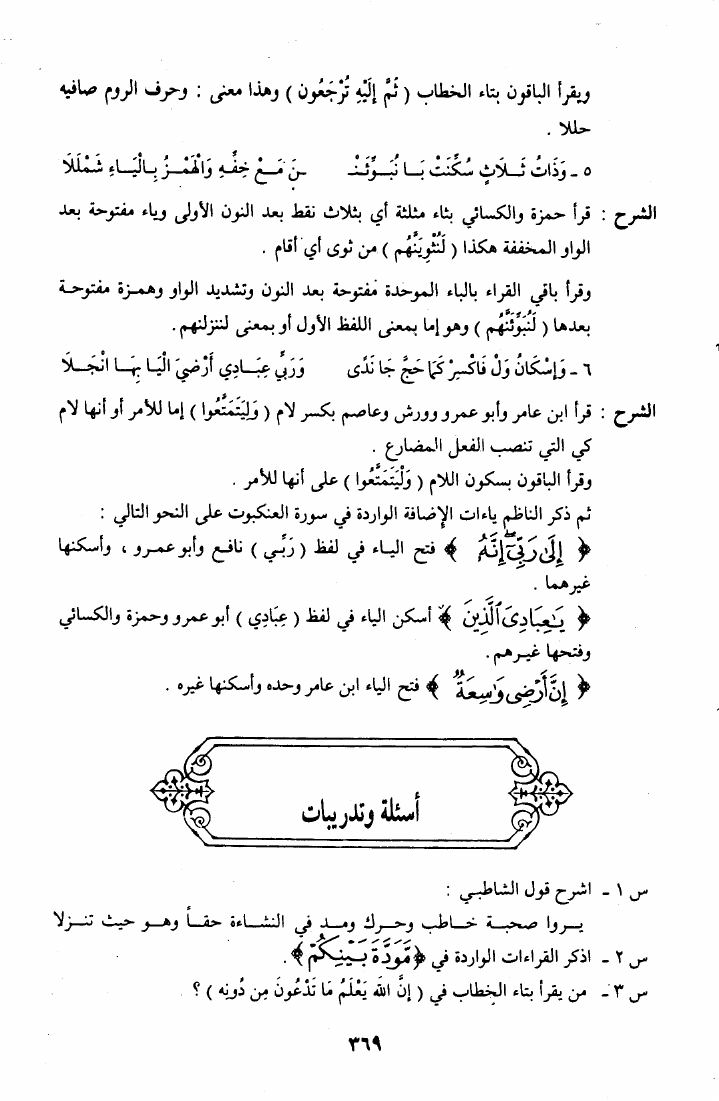 ويقرأ الباقون بتاء الخطاب ( ثُمَّ إِلَيْهِ تُرْجَعُون ) وهذا معنى : وحرف الروم صافيه
حللا .
٥ ـ وَذَاتُ ثَــلاَثٍ سُكِّنَتْ بَــا نُبَــوِّئَنْـ ـنَ مَــعْ خِفِّــهِ وَالْهَمْــزُ بِـالْيَــاءِ شَمْلَلَا
الشرح : قرأ حمزة والكسائي بثاء مثلثة أي بثلاث نقط بعد النون الأولى وياء مفتوحة بعد
الواو المخففة هكذا ( لَنُثْوِيَنَّهُم ) من ثوى أي أقام .
وقرأ باقي القراء بالباء الموحدة مفتوحة بعد النون وتشديد الواو وهمـزة مفتوحـة
بعدها ( لَنُبَوِّئَنَّهُم ) وهو إما بمعنى اللفظ الأول أو بمعنى لننزلنهم.
٦ ـ وَإِسْكَانُ وَلْ فَاكْسِرْ كَمَا حَجَّ جَا نَدًى وَرَبِّي عِبَــادِي أَرْضِيَ الْيَـا بِهَـا انْجَــلَا
الشرح : قرأ ابن عامر وأبو عمرو وورش وعاصم بكسر لام ( وَلِيَتَمَتَّعُوا ) إما للأمر أو أنها لام
كي التي تنصب الفعل المضارع .
وقرأ الباقون بسكون اللام ( وَلْيَتَمَتَّعُوا ) على أنها للأمر .
ثم ذكر الناظم ياءات الإضافة الواردة في سورة العنكبوت على النحو التالي :
﴿ إِلَىٰ رَبِّىٓ إِنَّهُ ﴾ فتح اليـاء في لفظ ( رَبِّـي ) نافـع وأبو عمـرو ، وأسكنها
غيرهما .
﴿ يَٰعِبَادِىَ ٱلَّذِينَ ﴾ أسكن الياء في لفظ ( عِبَادِي ) أبو عمرو وحمزة والكسائي
وفتحها غيـرهم.
﴿ إِنَّ أَرْضِى وَٰسِعَةٌ ﴾ فتح الياء ابن عامر وحده وأسكنها غيره .
أسئلة وتدريبات
س ١ ـ اشرح قول الشاطبـي :
يــروا صحبــة خــاطب وحــرك ومــد في النشــاءة حقــاً وهــو حيث تنــزلا
س ٢ ـ اذكر القراءات الواردة في ﴿مَّوَدَّةَ بَيْنِكُمْ﴾.
س ٣ ـ من يقرأ بتاء الخطاب في ( إِنَّ اللَّهَ يَعْلَمُ مَا تَدْعُونَ مِن دُونِه ) ؟
٣٦٩